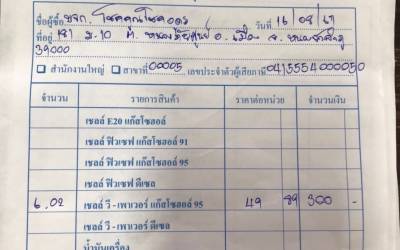 ชื่อผู้ซื้อ หจก. โชคคูณโชคอุดร วันที่ 16/08/67
ที่อยู่ 181 ม.10 ต. หนองภัยศูนย์ อ. เมือง จ. หนองบัวลำภู
39000
สำนักงานใหญ่ สาขาที่ 00005 เลขประจำตัวผู้เสียภาษี 0415554000050
จำนวน รายการสินค้า ราคาต่อหน่วย จำนวนเงิน
เชลล์ E20 แก๊สโซฮอล์
เชลล์ ฟิวเซฟ แก๊สโซฮอล์ 91
เชลล์ ฟิวเซฟ แก๊สโซฮอล์ 95
เชลล์ ฟิวเซฟ ดีเซล
6.02 เชลล์ วี - เพาเวอร์ แก๊สโซฮอล์ 95 49 89 300 -
เชลล์ วี - เพาเวอร์ ดีเซล
น้ำมันเครื่อง